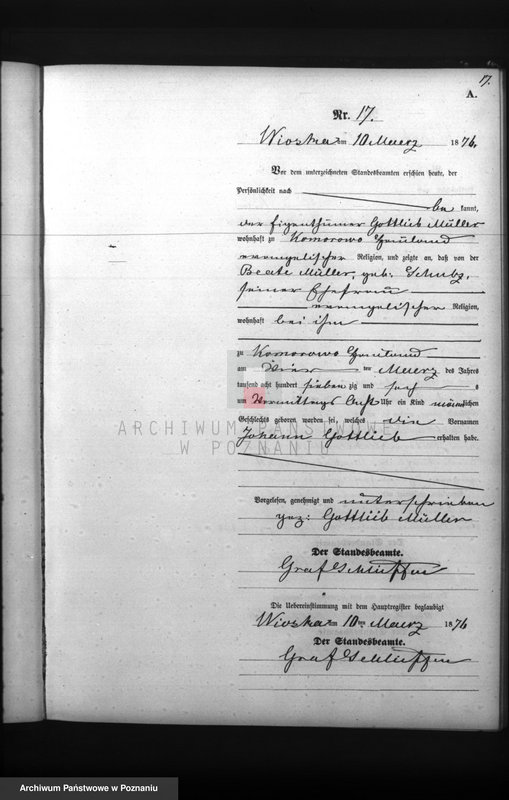 17.
A.
Nr. 17.
Wioska am 10 Maerz 1876.
Vor dem unterzeichneten Standesbeamten erschien heute, der
Persönlichkeit nach
be kannt,
der Eigenthümer Gottlieb Müller
wohnhaft zu Komorowo Hauland
evangelischer Religion, und zeigte an, daß von der
Beate Müller, geb. Schulz,
seiner Ehefrau
evangelischer Religion,
wohnhaft bei ihm
zu Komorowo Hauland
am vier ten Maerz des Jahres
tausend acht hundert sieben zig und sechs
um Vormittags acht Uhr ein Kind männlichen
Geschlechts geboren worden sei, welches die Vornamen
Johann Gottlieb erhalten habe.
ARCHIWUM PAŃSTWOWE
W POZNANIU
Vorgelesen, genehmigt und unterschrieben
gez: Gottlieb Müller
Der Standesbeamte.
Graf Schlieffen
Die Uebereinstimmung mit dem Hauptregister beglaubigt
Wioska am 10ten Maerz 1876
Der Standesbeamte.
Graf Schlieffen
Archiwum Państwowe w Poznaniu